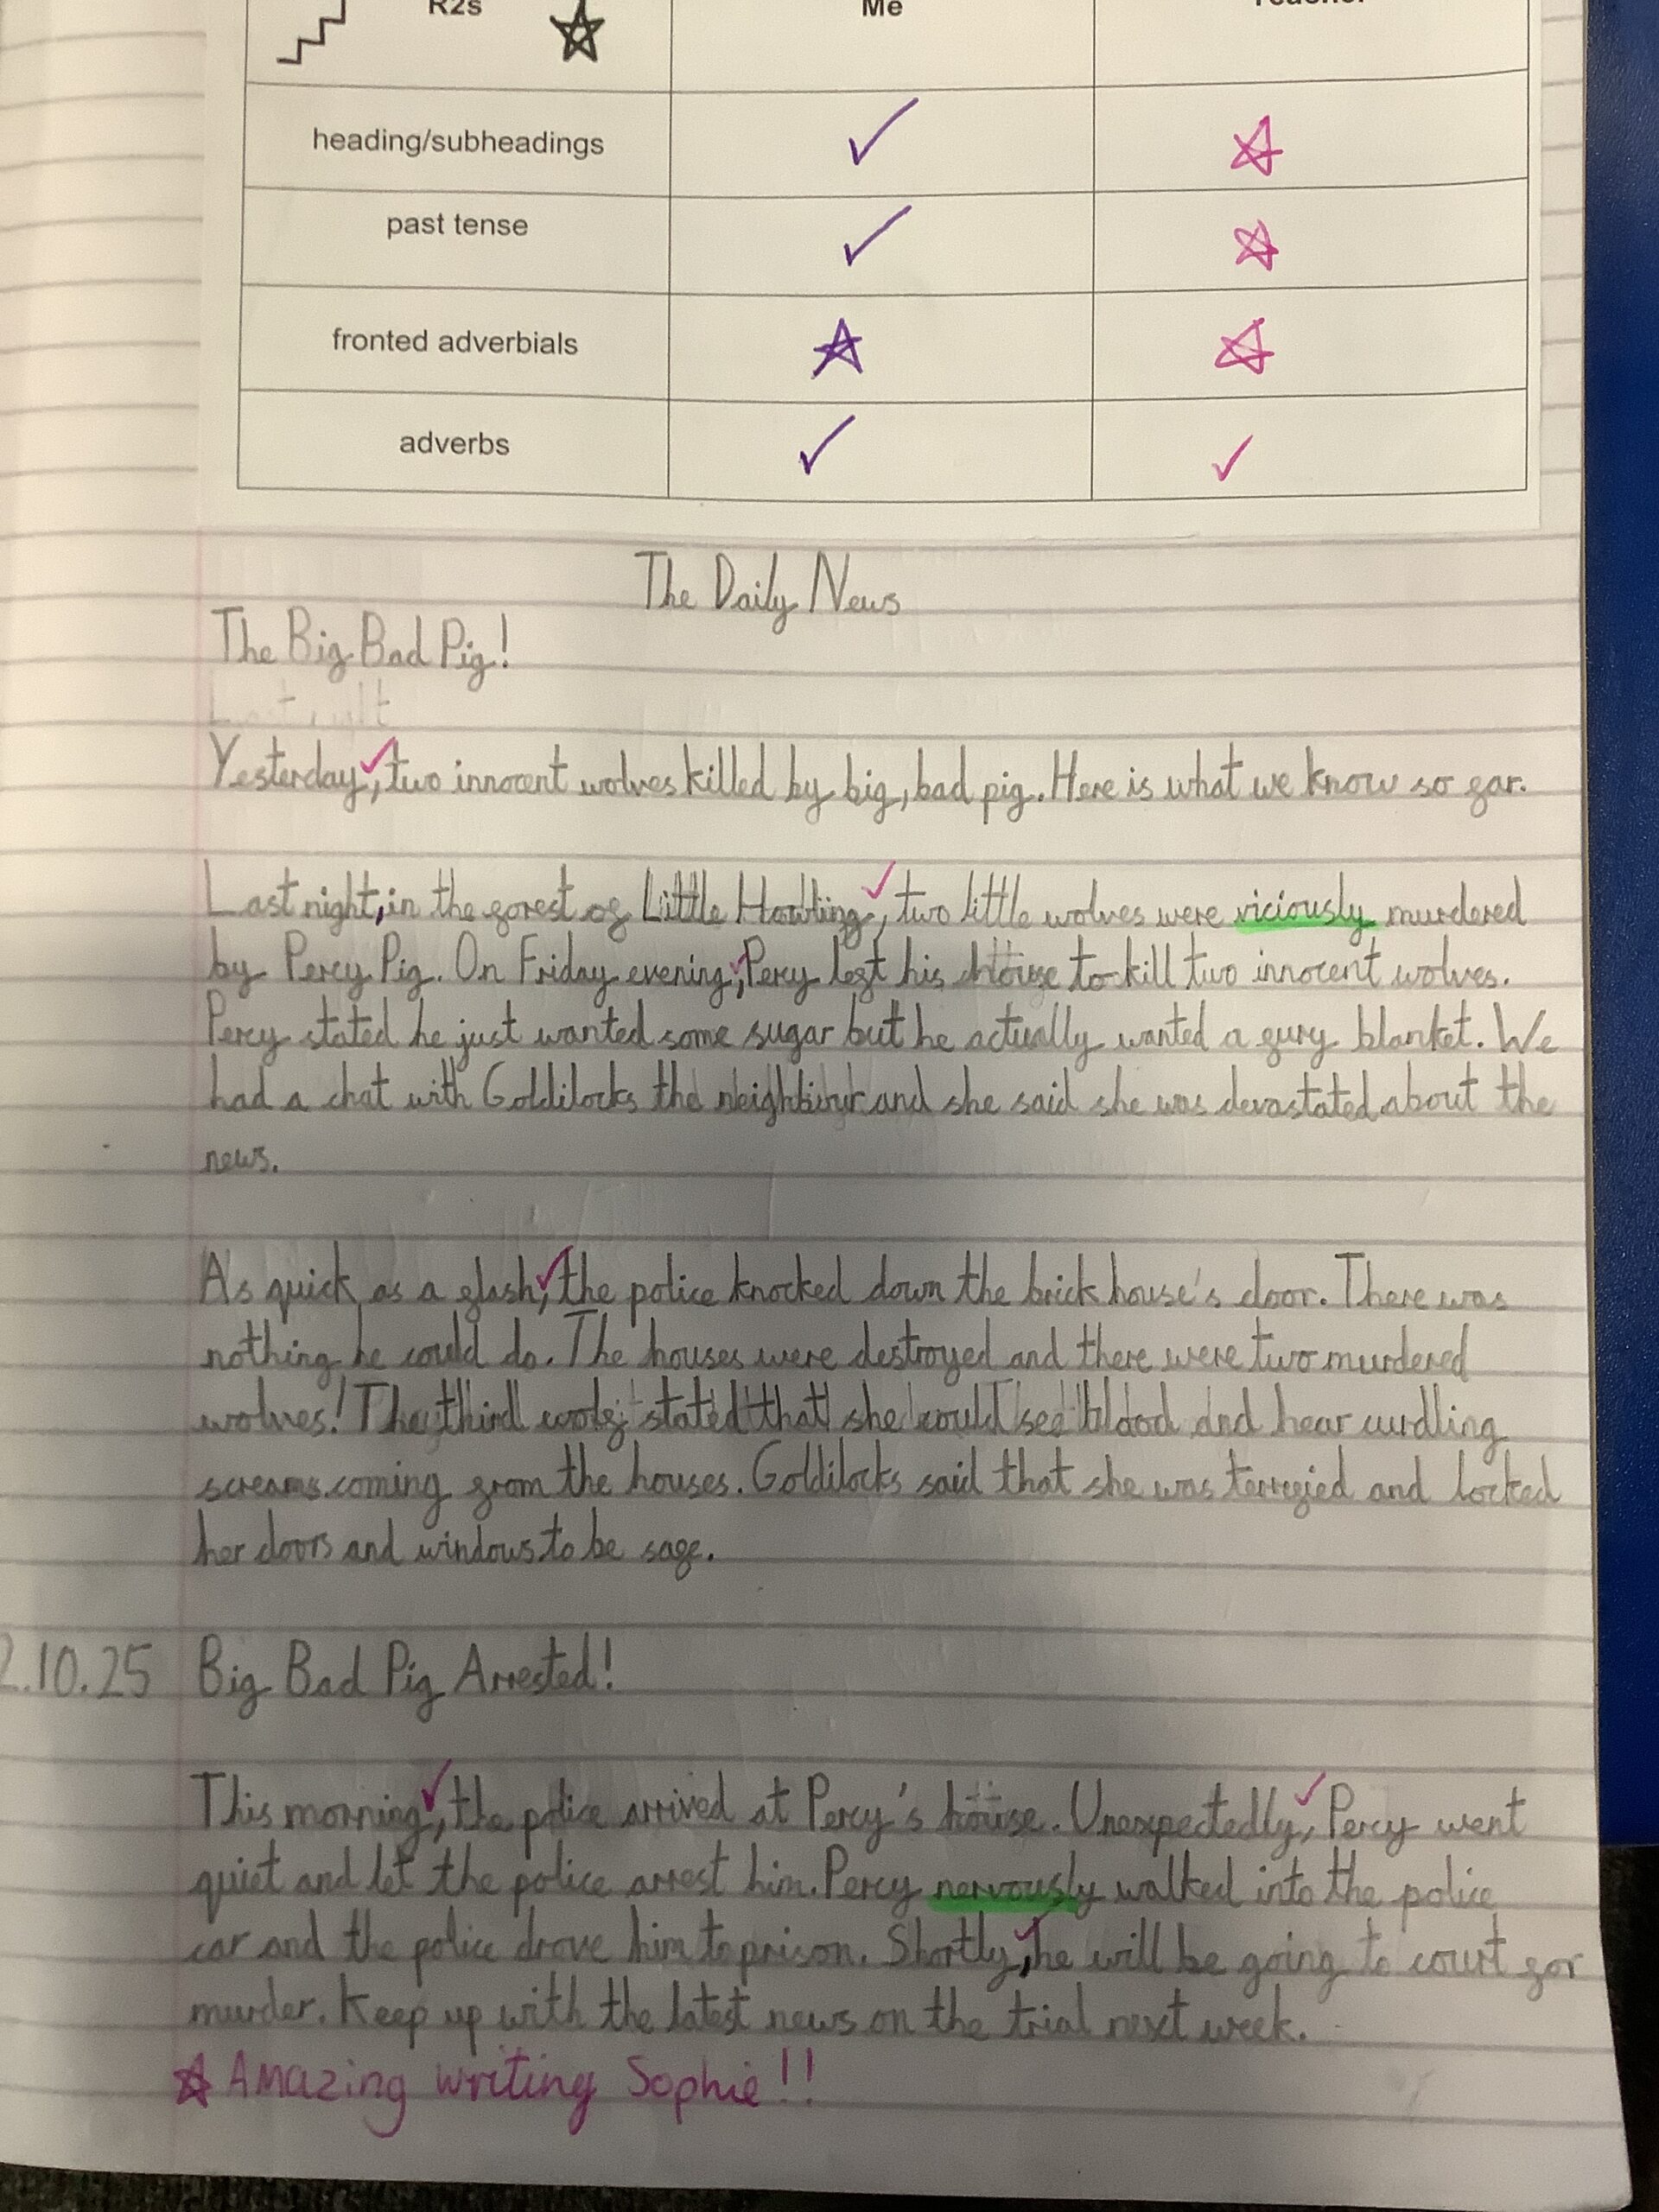 R2s Me Teacher
heading/subheadings
past tense
fronted adverbials
adverbs
The Daily News
The Big Bad Pig!
Yesterday, two innocent wolves killed by big, bad pig. Here is what we know so far.
Last night, in the forest of Little Howling, two little wolves were viciously murdered
by Percy Pig. On Friday evening, Percy left his house to kill two innocent wolves.
Percy stated he just wanted some sugar but he actually wanted a fury blanket. We
had a chat with Goldilocks the neighbour and she said she was devastated about the
news.
As quick as a flash, the police knocked down the brick house's door. There was
nothing he could do. The houses were destroyed and there were two murdered
wolves! The third wolf stated that she could see blood and hear curdling
screams coming from the houses. Goldilocks said that she was terrefied and locked
her doors and windows to be safe.
2.10.25 Big Bad Pig Arrested!
This morning, the police arrived at Percy's house. Unexpectedly, Percy went
quiet and let the police arrest him. Percy nervously walked into the police
car and the police drove him to prison. Shortly, he will be going to court for
murder. Keep up with the latest news on the trial next week.
Amazing writing Sophie!!